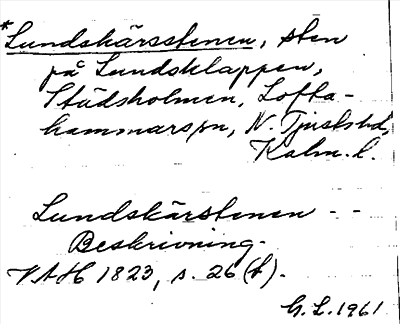 *Lundskärsstenen, sten
på Lundsklappen,
Städsholmen, Lofta-
hammarspn, N. Tjustshd,
Kalm. l.
Lundskärstenen - -
Beskrivning.
VAH 1823, s. 26 (f).
G. L. 1961